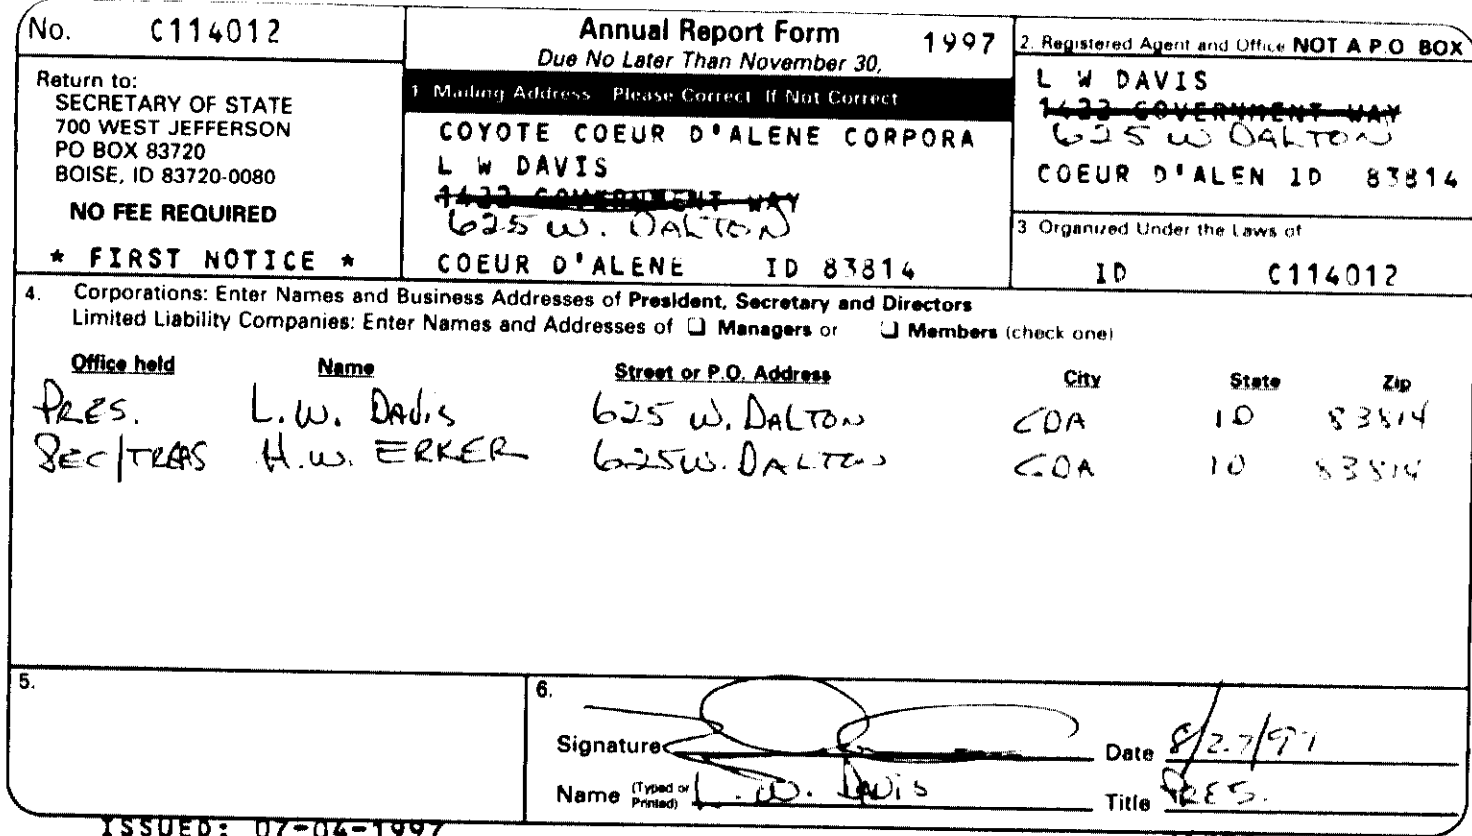 No. C114012
Return to:
SECRETARY OF STATE
700 WEST JEFFERSON
PO BOX 83720
BOISE, ID 83720-0080
NO FEE REQUIRED
* FIRST NOTICE *
Annual Report Form 1997
Due No Later Than November 30,
1 Mailing Address Please Correct If Not Correct
COYOTE COEUR D'ALENE CORPORA
L W DAVIS
1422 GOVERNMENT WAY
625 W. DALTON
COEUR D'ALENE ID 83814
2. Registered Agent and Office NOT A P.O BOX
L W DAVIS
1422 GOVERNMENT WAY
625 W DALTON
COEUR D'ALEN ID 83814
3 Organized Under the Laws of
ID C114012
4. Corporations: Enter Names and Business Addresses of President, Secretary and Directors
Limited Liability Companies: Enter Names and Addresses of Managers or Members (check one)
Office held Name Street or P.O. Address City State Zip
PRES. L.W. DAVIS 625 W. DALTON CDA ID 83814
SEC/TREAS H.W. ERKER 625 W. DALTON CDA ID 83814
5.
6.
Signature Date 8/27/97
Name (Typed or Printed) L. W. DAVIS Title PRES.
ISSUED: 07-04-1997